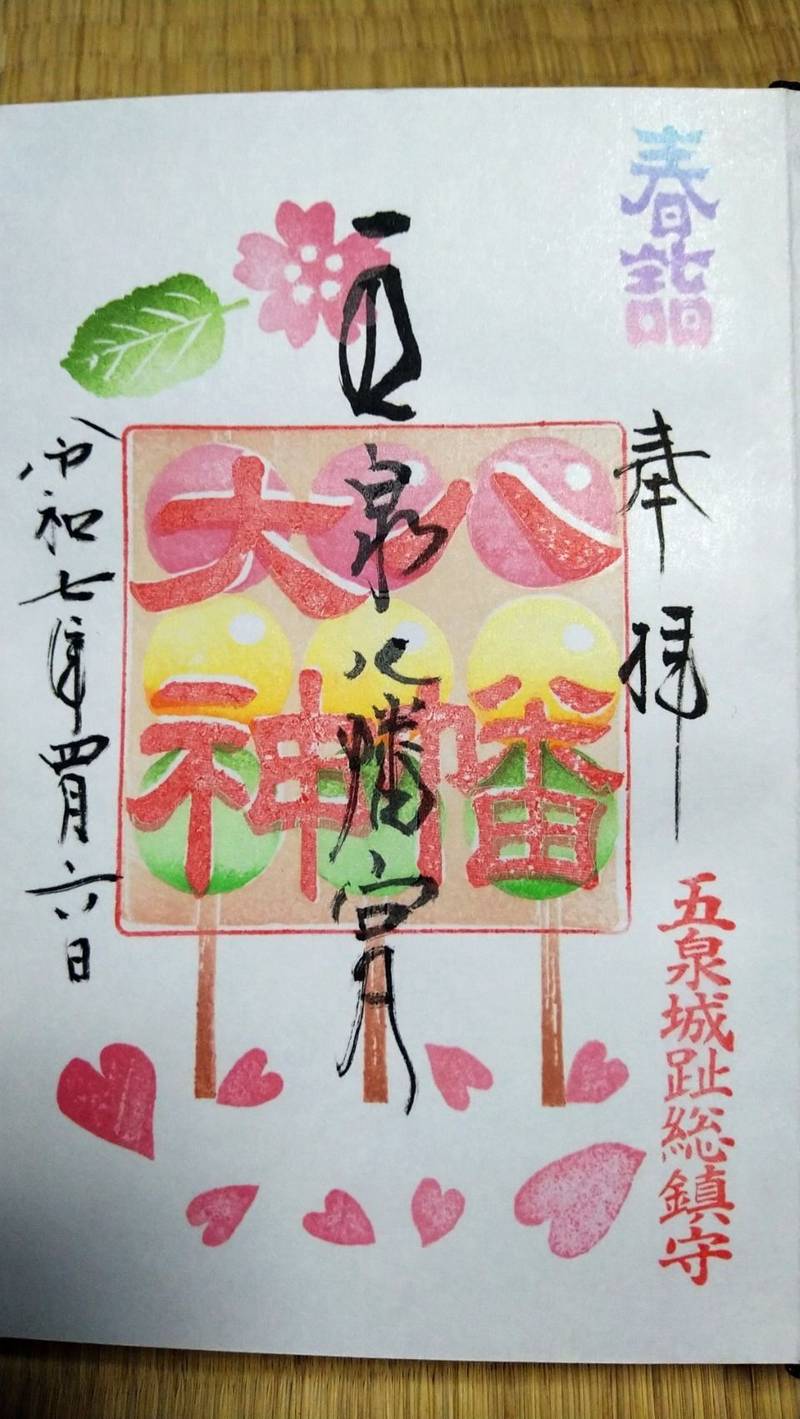 春詣
奉拝
五泉城趾総鎮守
五泉八幡宮
八幡
大神
令和七年四月六日